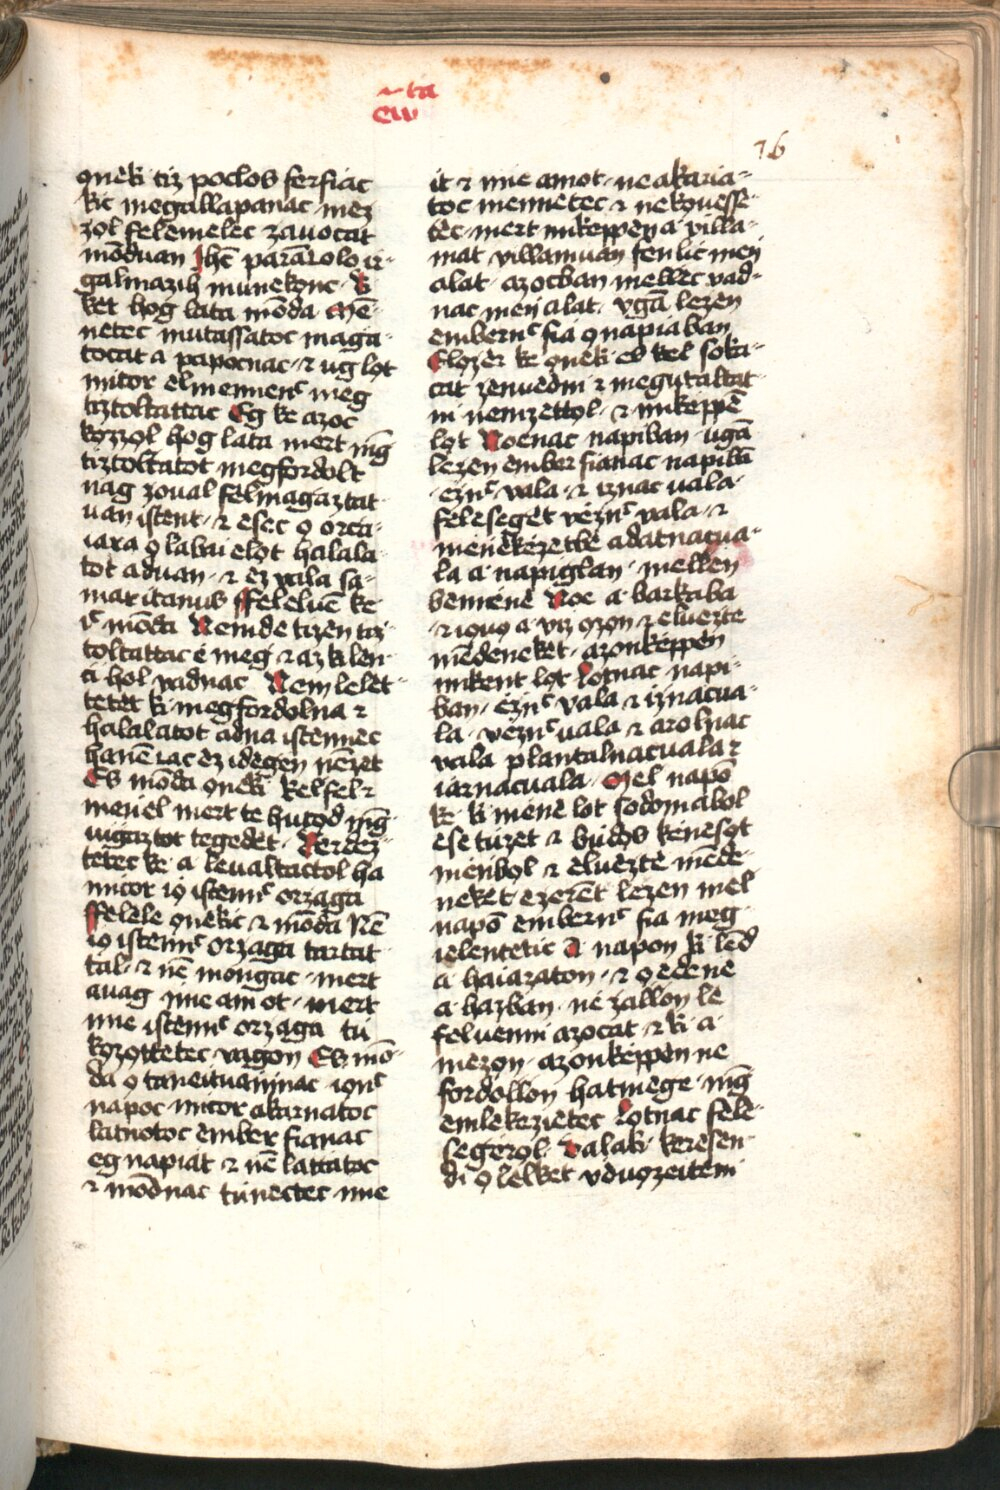 ta
ew
76
ọnèki tiz poclos ferfiac
kic megallapanac · mez
zol felèmelec zauocat
mōduan Ihc̄ paranc̄olo ir
galmazih̄ munekonc · K
ket hog lata mōda Mē
netec mutassatoc maga
tocat a papocnac · ⁊ ug lọt
micor elmennenc̄ meg
tiztoltattac Eg ke azoc
kọzzọl hog lata mert mḡ
tiztoltatot megfordolt
nag zoual felmagaztat
uan istent · ⁊ esec ọ orca
iara ọ labai elọt halala
tot aduan · ⁊ ez vala sa
maritanus Ffeleluē ke
ic̄ mōda Nemde tizen tiz
toltattac è meg ⁊ az kilen
ci hol vadnac Nem lelèt
tetèt ki megfordolna ⁊
halalatot adna istennec
hanē iac èz idegèn nēzèt
Es mōda ọnèki Kelfel ⁊
mèniel mert te hutọd mḡ
uigaztot tegedèt · Kerdez
tètec ke a leualtactol ha
micor iọ istenn̄c orzaga
Ffelele ọnèkic ⁊ mōda Nē
iọ istenn̄c orzaga tartat
tal · ⁊ nē mongac · mert
auag ime amot · mert
ime istenn̄c orzaga tu
kọzọttètec vagon Es mō
da ọ taneituaninac iọn̄c
napoc micor akarnatoc
latnotoc èmber fianac
eg napiat ⁊ nē lattatoc
⁊ mōdnac tunèctèc ime
it ⁊ ime amot · ne akaria
toc mennètèc ⁊ ne kọuesse
tèc · mert mikeppèn a villa
mat · villamuan fenlic mēn
alat · azocban mellec vad
nac mēn alat · vgā lezen
embern̄c fia ọ napiaban
Elọzèr ke ọnèki es kèl soka
cat zenuedni ⁊ megutaltat
ni nemzettọl · ⁊ mikeppē
lọt Noenac napiban ugā
lezèn èmber fianac napibā
èzn̄c vala · ⁊ iznac uala ·
feleseget vezn̄c vala · ⁊
mēnèkèzètbe adatnacua
la a · napiglan · mellen
bemène Noe a · barkaba
⁊ iọuọ a · viz ọzọn ⁊ eluezte
mēdènèket · azonkèppèn
mikent lọt Lotnac napi
ban · èzn̄c vala ⁊ iznacua
la · vèzn̄c uala ⁊ arolnac
vala plantalnacuala ⁊
iarnacuala · Mel napō
ke · kimène lot sodomabol
ese tuzet ⁊ budọs kènesọt
mēnbọl ⁊ eluezte mēdè
neket · ezerēt lezen mel
napō embern̄c fia meg
ielentetic A napon ki lēd
a haiazaton · ⁊ ọ edene
a hazban · nè zallon le
feluenni azocat ⁊ ki a
mezọn · azonkèppèn ne
fordollon hatmege · mḡ
emlekezietec Lotnac fele
segerọl · Valaki keresen
di ọ lelket vduọzeiteni